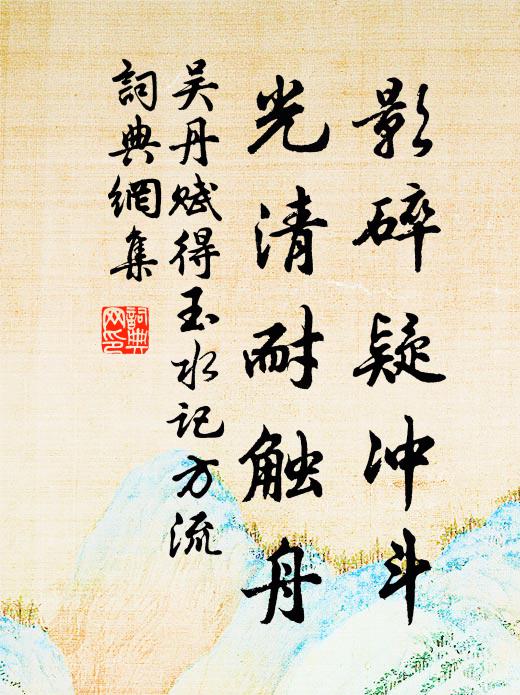 影碎疑冲斗
光清耐触舟
吴丹赋得玉水记方流
詞典網集
詞典网印